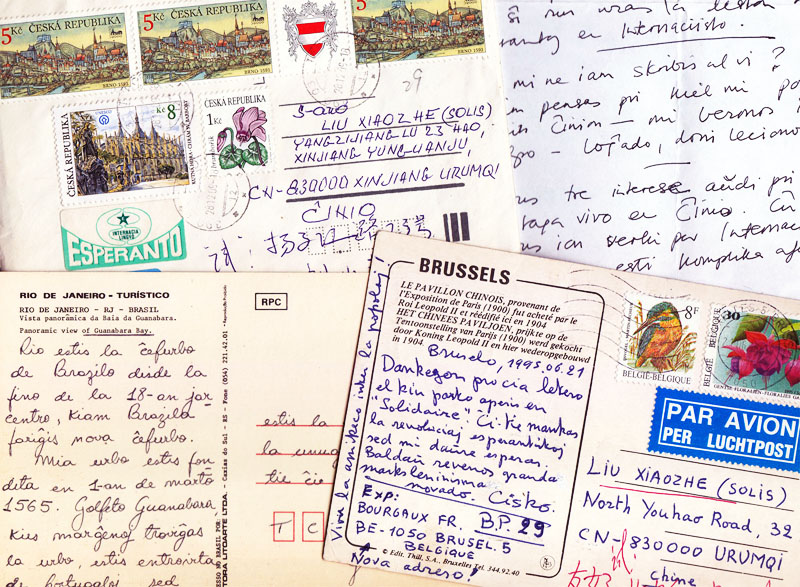 5Kč ČESKÁ REPUBLIKA
BRNO 1593
5Kč ČESKÁ REPUBLIKA
BRNO 1593
5Kč ČESKÁ REPUBLIKA
BRNO 1593
29
ČESKÁ REPUBLIKA
Kč 8
ČESKÁ REPUBLIKA
1Kč
S-ano
LIU XIAOZHE (SOLIS)
YANGZIJIANG LU 23 HAO,
XINJIANG YUNGUANJU,
CN-830000 XINJIANG URUMQI
ĈINIO
INTERNACIA
LINGVO
ESPERANTO
en Internaciisto.
mi ne iam skribis al vi?
pensas pri kiel mi
Ĉinion — mi bezonos
loĝado, doni leciono
tre interese aŭdi pri
vivo en Ĉinio. Ĉu
ian verki por Internaci
esti komplika
RIO DE JANEIRO - TURÍSTICO
RIO DE JANEIRO - RJ - BRASIL
Vista panorâmica da Baía da Guanabara.
Panoramic view of Guanabara Bay.
RPC
Rio estis la ĉefurbo
de Brazilo disde la
fino de la 18-an jar
centro, kiam Brazila
fariĝis nova ĉefurbo.
Mia urbo estis fon
dita en 1-an de marto
1565. Golfeto Guanabara,
kies marĝenoj troviĝas
la urbo, estis
de portugaloj sed
estis la
la unug
tie ĉie
T C
BRUSSELS
LE PAVILLON CHINOIS, provenant de
l'Exposition de Paris (1900) fut acheté par le
Roi Leopold II et réédifié ici en 1904
HET CHINEES PAVILJOEN, prijkte op de
Tentoonstelling van Parijs (1900) werd gekocht
door Koning Leopold II en hier wederopgebouwd
in 1904
Bruselo, 1995.06.21
Dankegon pro cia letero
el kiu parto aperis en
"Solidaire". Ĉi-tie mankas
la revoluciaj esperantistoj
sed mi daŭre esperas.
Baldaŭ revenos granda
marksleninisma
movado. Cisko.
Vivu la amikeco inter la popoloj!
Exp:
BOURGAUX FR. B.P. 29
BE-1050 BRUSEL. 5
BELGIQUE
© Edit. Thill, S.A., Bruxelles Tel. 344.92.40
Nova adreso!
8F
BELGIË-BELGIQUE
30
BELGIQUE BELGIË
PAR AVION
PER LUCHTPOST
LIU XIAOZHE (SOLIS)
North Youhao Road, 32
CN-830000 URUMQI
Chine